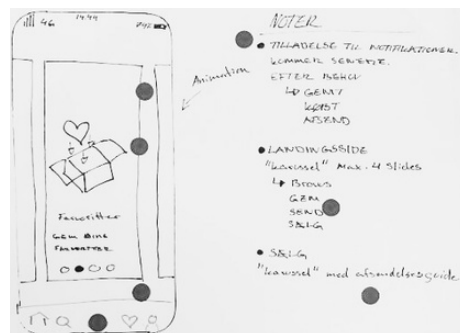 4G 14.44 79%
Favoritter
GEM DINE
FAVORITTER
Animation
NOTER
TILLADELSE TIL NOTIFIKATIONER.
KOMMER SENERE.
EFTER BEHOV
GEMT
KØBT
AFSEND
LANDINGSSIDE
"karussel" Max. 4 Slides
Brows
GEM
SEND
SÆLG
SÆLG
"karussel" med afsendelsesguide